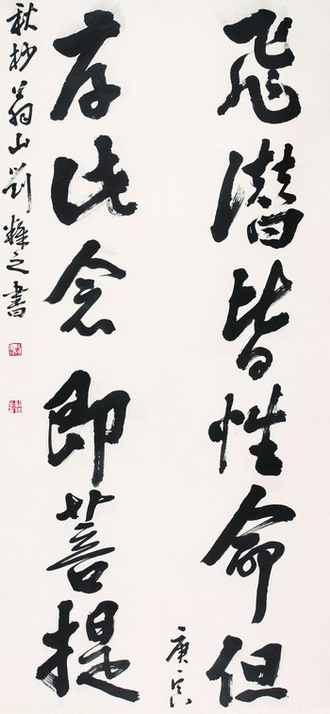 飞潜皆性命但
存此念即菩提
庚寅
秋杪翁山刘
之书